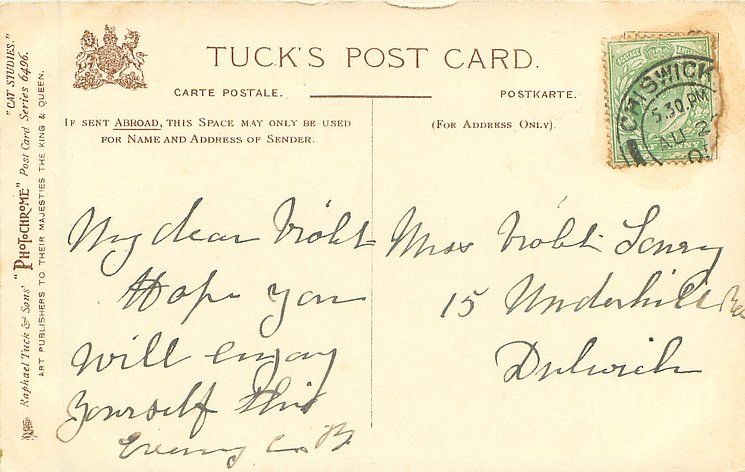 TUCK'S POST CARD.
CARTE POSTALE.
POSTKARTE.
IF SENT ABROAD, THIS SPACE MAY ONLY BE USED
FOR NAME AND ADDRESS OF SENDER.
(FOR ADDRESS ONLY).
"CAT STUDIES."
Raphael Tuck & Sons' "PHOTOCHROME" Post Card Series 6496.
ART PUBLISHERS TO THEIR MAJESTIES THE KING & QUEEN.
CHISWICK
5.30 PM
AU 2
POSTAGE
My dear Violet
Hope you
will enjoy
yourself this
Miss Violet
15 Underhill
Dulwich